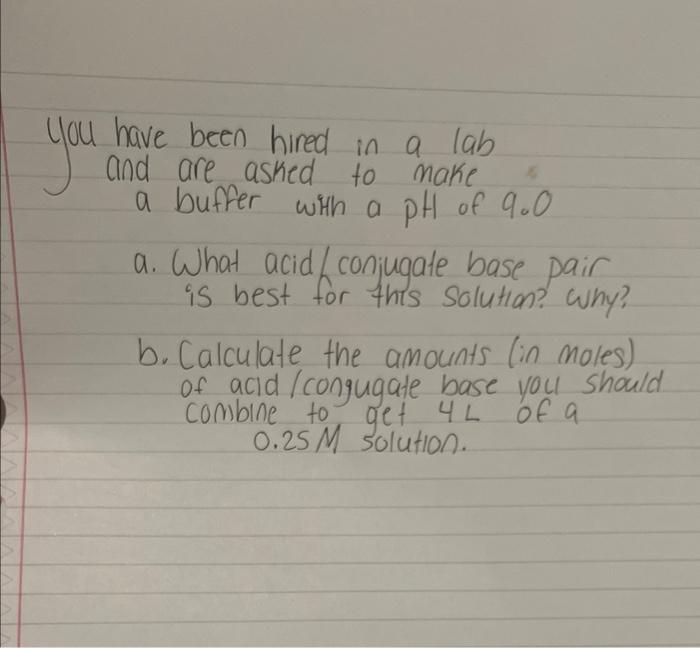 you have been hired in a lab
and are asked to make
a buffer with a pH of 9.0
a. What acid/conjugate base pair
is best for this solution? why?
b. Calculate the amounts (in moles)
of acid/congugate base you should
combine to get 4L of a
0.25M solution.